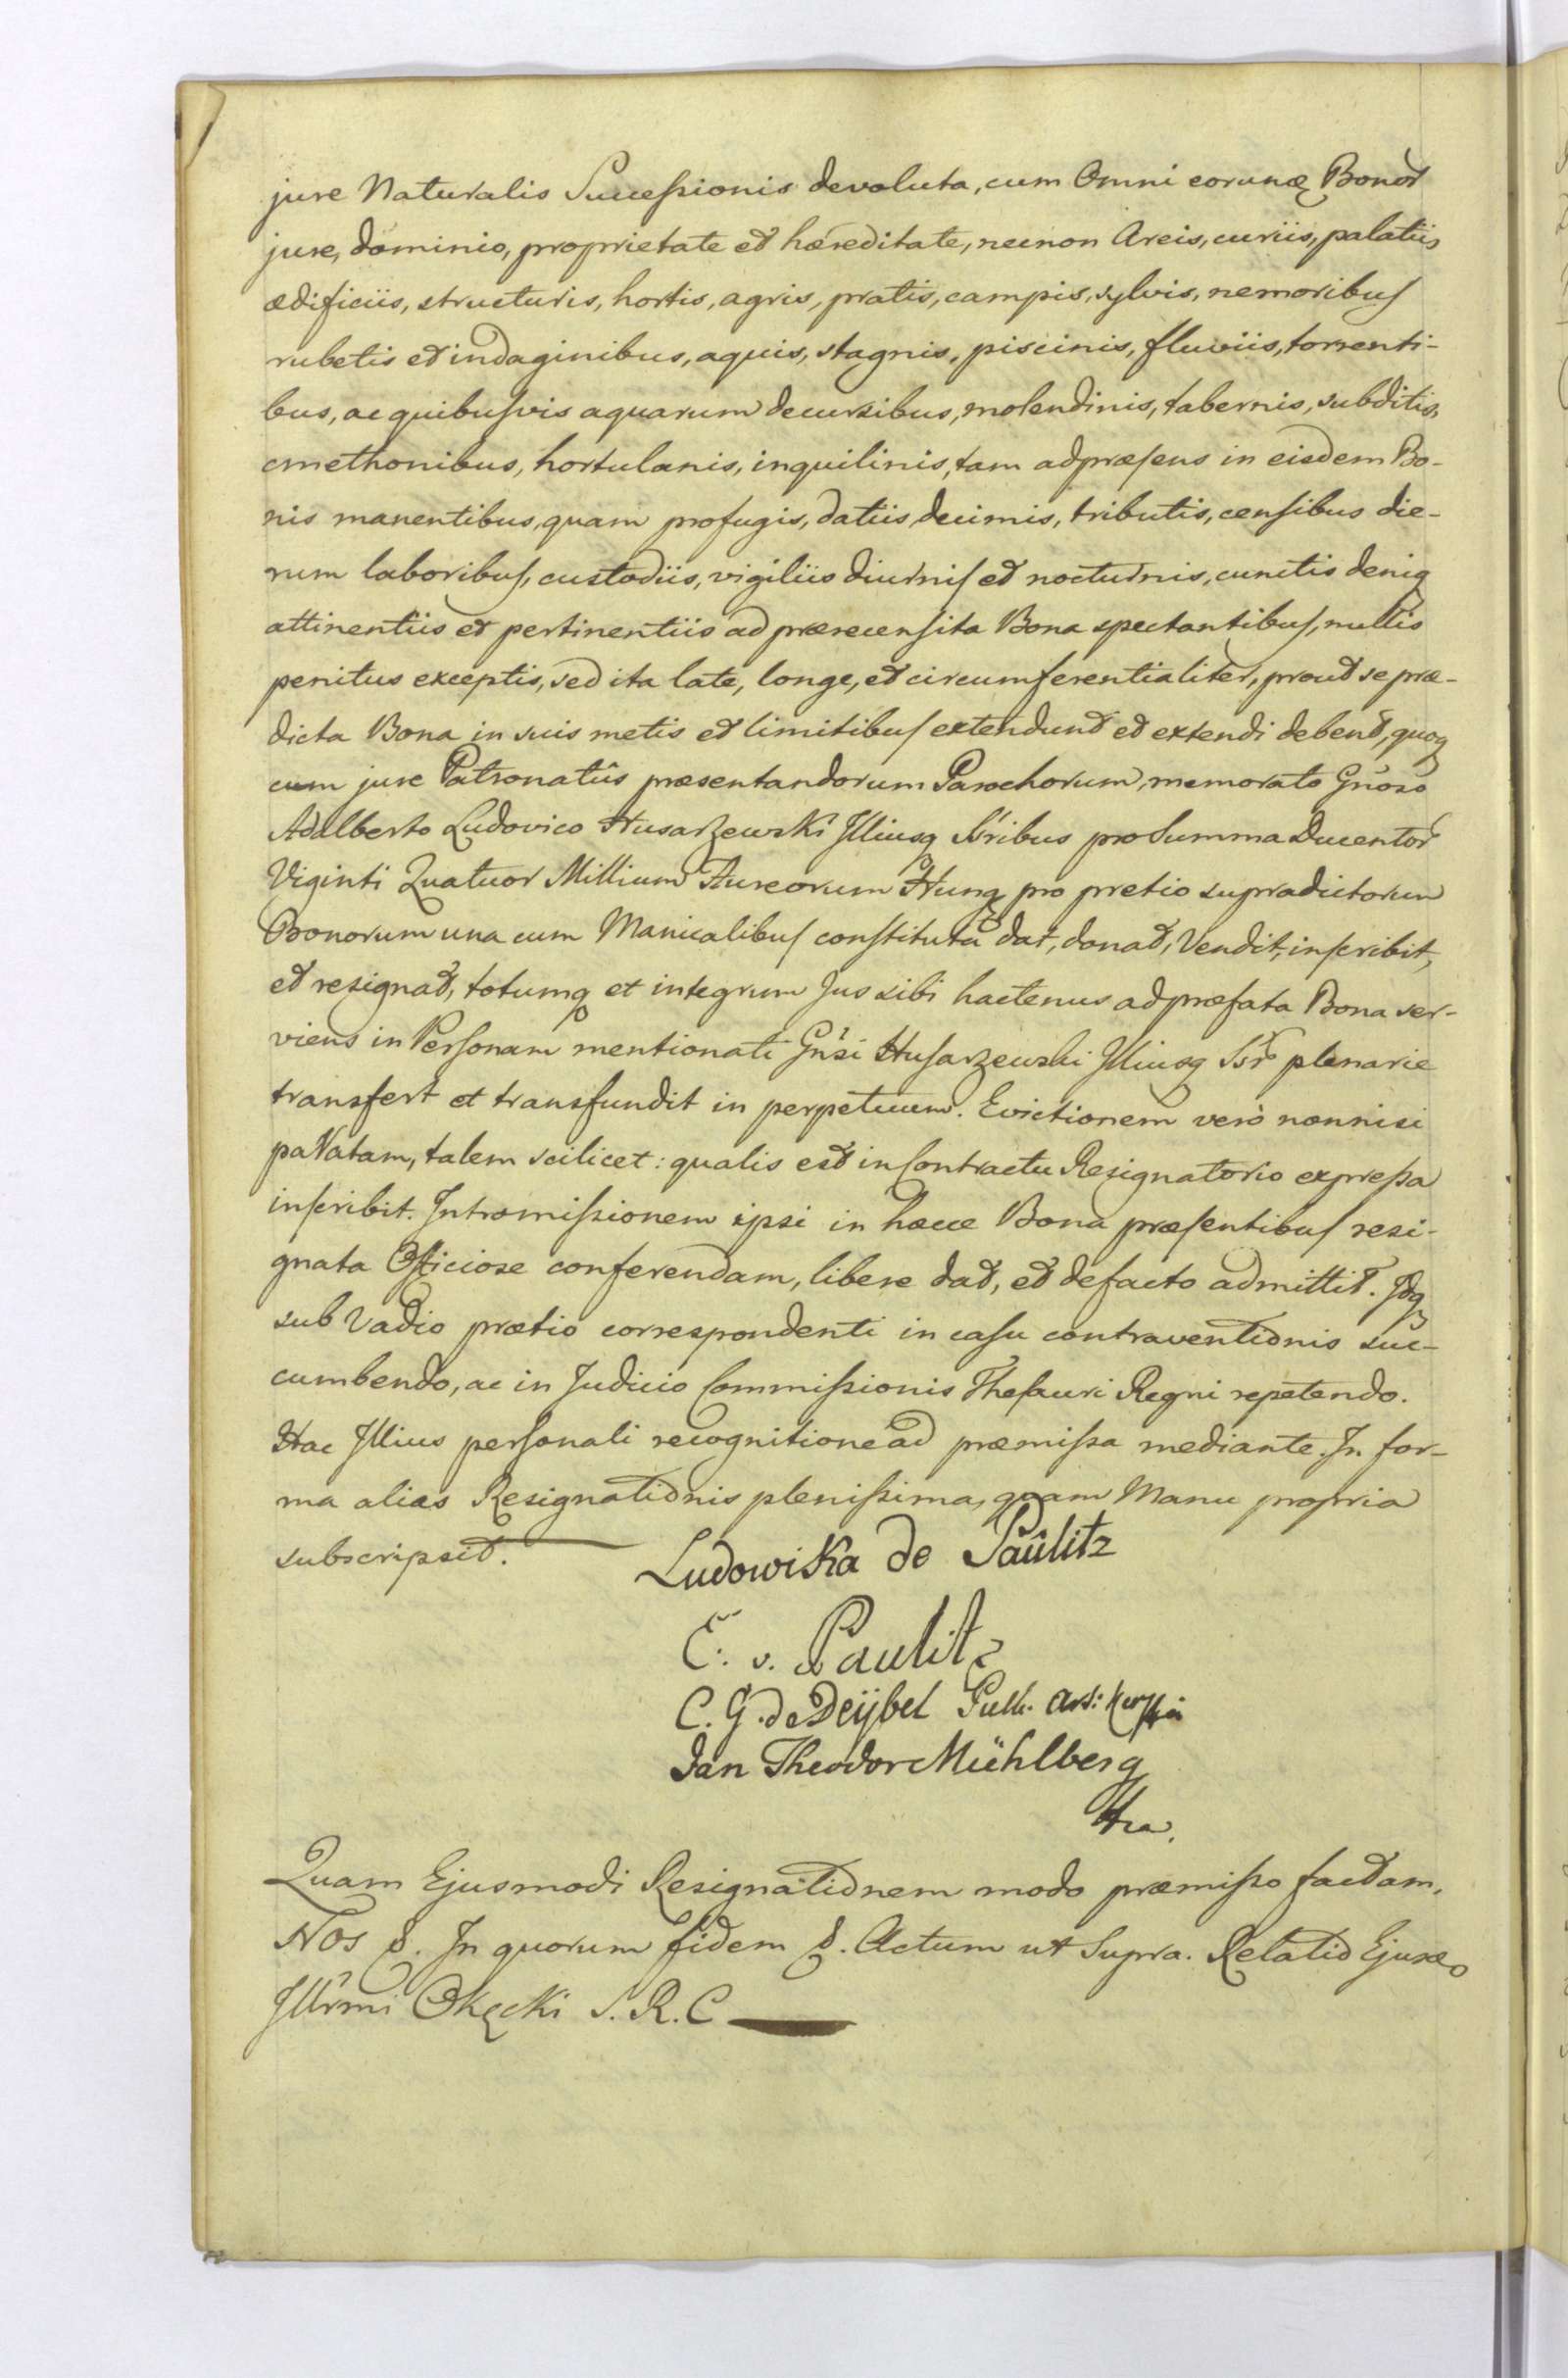 jure Naturalis Succeßionis devoluta, cum Omni eorunq Bonor
jure, dominio, proprietate et hæreditate, necnon Areis, curiis, palatiis
ædificiis, structuris, hortis, agris, pratis, campis, sylvis, nemoribus
rubetis et indaginibus, aquis, stagnis, piscinis, fluviis, torrenti-
bus, ac quibusvis aquarum decursibus, molendinis, tabernis, subditis,
cmethonibus, hortulanis, inquilinis, tam adpræsens in eisdem Bo-
nis manentibus, quam profugis, datiis decimis, tributis, censibus die-
rum laboribus, custodiis, vigiliis diurnis et nocturnis, cunctis deniq
attinentiis et pertinentiis ad præecensita Bona spectantibus, nullis
penitus exceptis, sed ita late, longe, et circumferentialiter, prout se præ-
dicta Bona in suis metis et limitibus extendunt et extendi debent, quoq
cum jure Patronatûs præsentandorum Parochorum, memorato Gnoso
Adalberto Ludovico Husarzewski Illiusq Ssribus pro Summa Ducentor
Viginti Quatuor Millium Aureorum Hung pro pretio supradictorum
Bonorum una cum Manicalibus constituta dat, donat, Vendit, inscribit,
et resignat, totumq et integrum Jus sibi hactenus ad præfata Bona ser-
viens in Personam mentionati Gnsi Husarzewski Illiusq Ssr plenarie
transfert et transfundit in perpetuum. Evictionem verò nonnisi
talem scilicet: qualis est in Contractu Resignatorio expreßa
inscribit. Intromißionem ipsi in hæcce Bona præsentibus resi-
gnata Officiose conferendam, libere dat, et defacto admittit. Idq
sub Vadio prætio correspondenti in casu contraventionis suc-
cumbendo, ac in Judicio Commißionis Thesauri Regni repetendo.
Hac Illius personali recognitione ad præmißa mediante. In for-
ma alias Resignationis plenißima, quam Manu propria
subscripsit.
Ludowika de Paûlitz
E. v. Paulitz
C. G. de Deÿbel
Jan Theodor Mühlberg
Quam Ejusmodi Resignationem modo præmißo factam,
Nos &. In quorum fidem &. Actum ut Supra. Relatio Ejusd
Illrmi Okęcki S. R. C